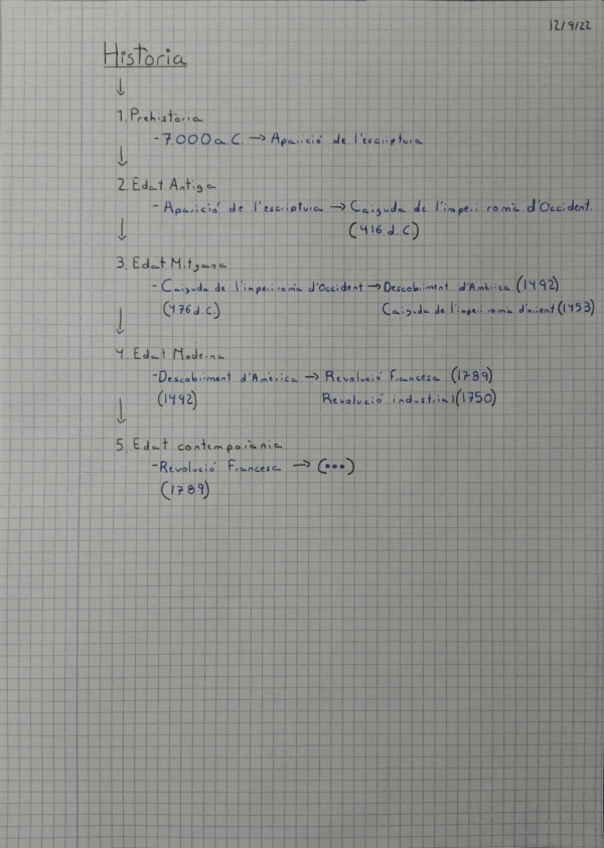 12/9/22
Historia
↓
1. Prehistòria
- 7.000 a.C. → Aparició de l'escriptura
↓
2. Edat Antiga
- Aparició de l'escriptura → Caiguda de l'imperi romà d'Occident.
(416 d.C)
↓
3. Edat Mitjana
- Caiguda de l'imperi romà d'Occident → Descobriment d'Amèrica (1492)
(476 d.C) Caiguda de l'imperi romà d'orient (1453)
↓
4. Edat Moderna
- Descobriment d'Amèrica → Revolució francesa (1789)
(1492) Revolució industrial (1750)
↓
5. Edat contemporània
- Revolució Francesa → (...)
(1789)